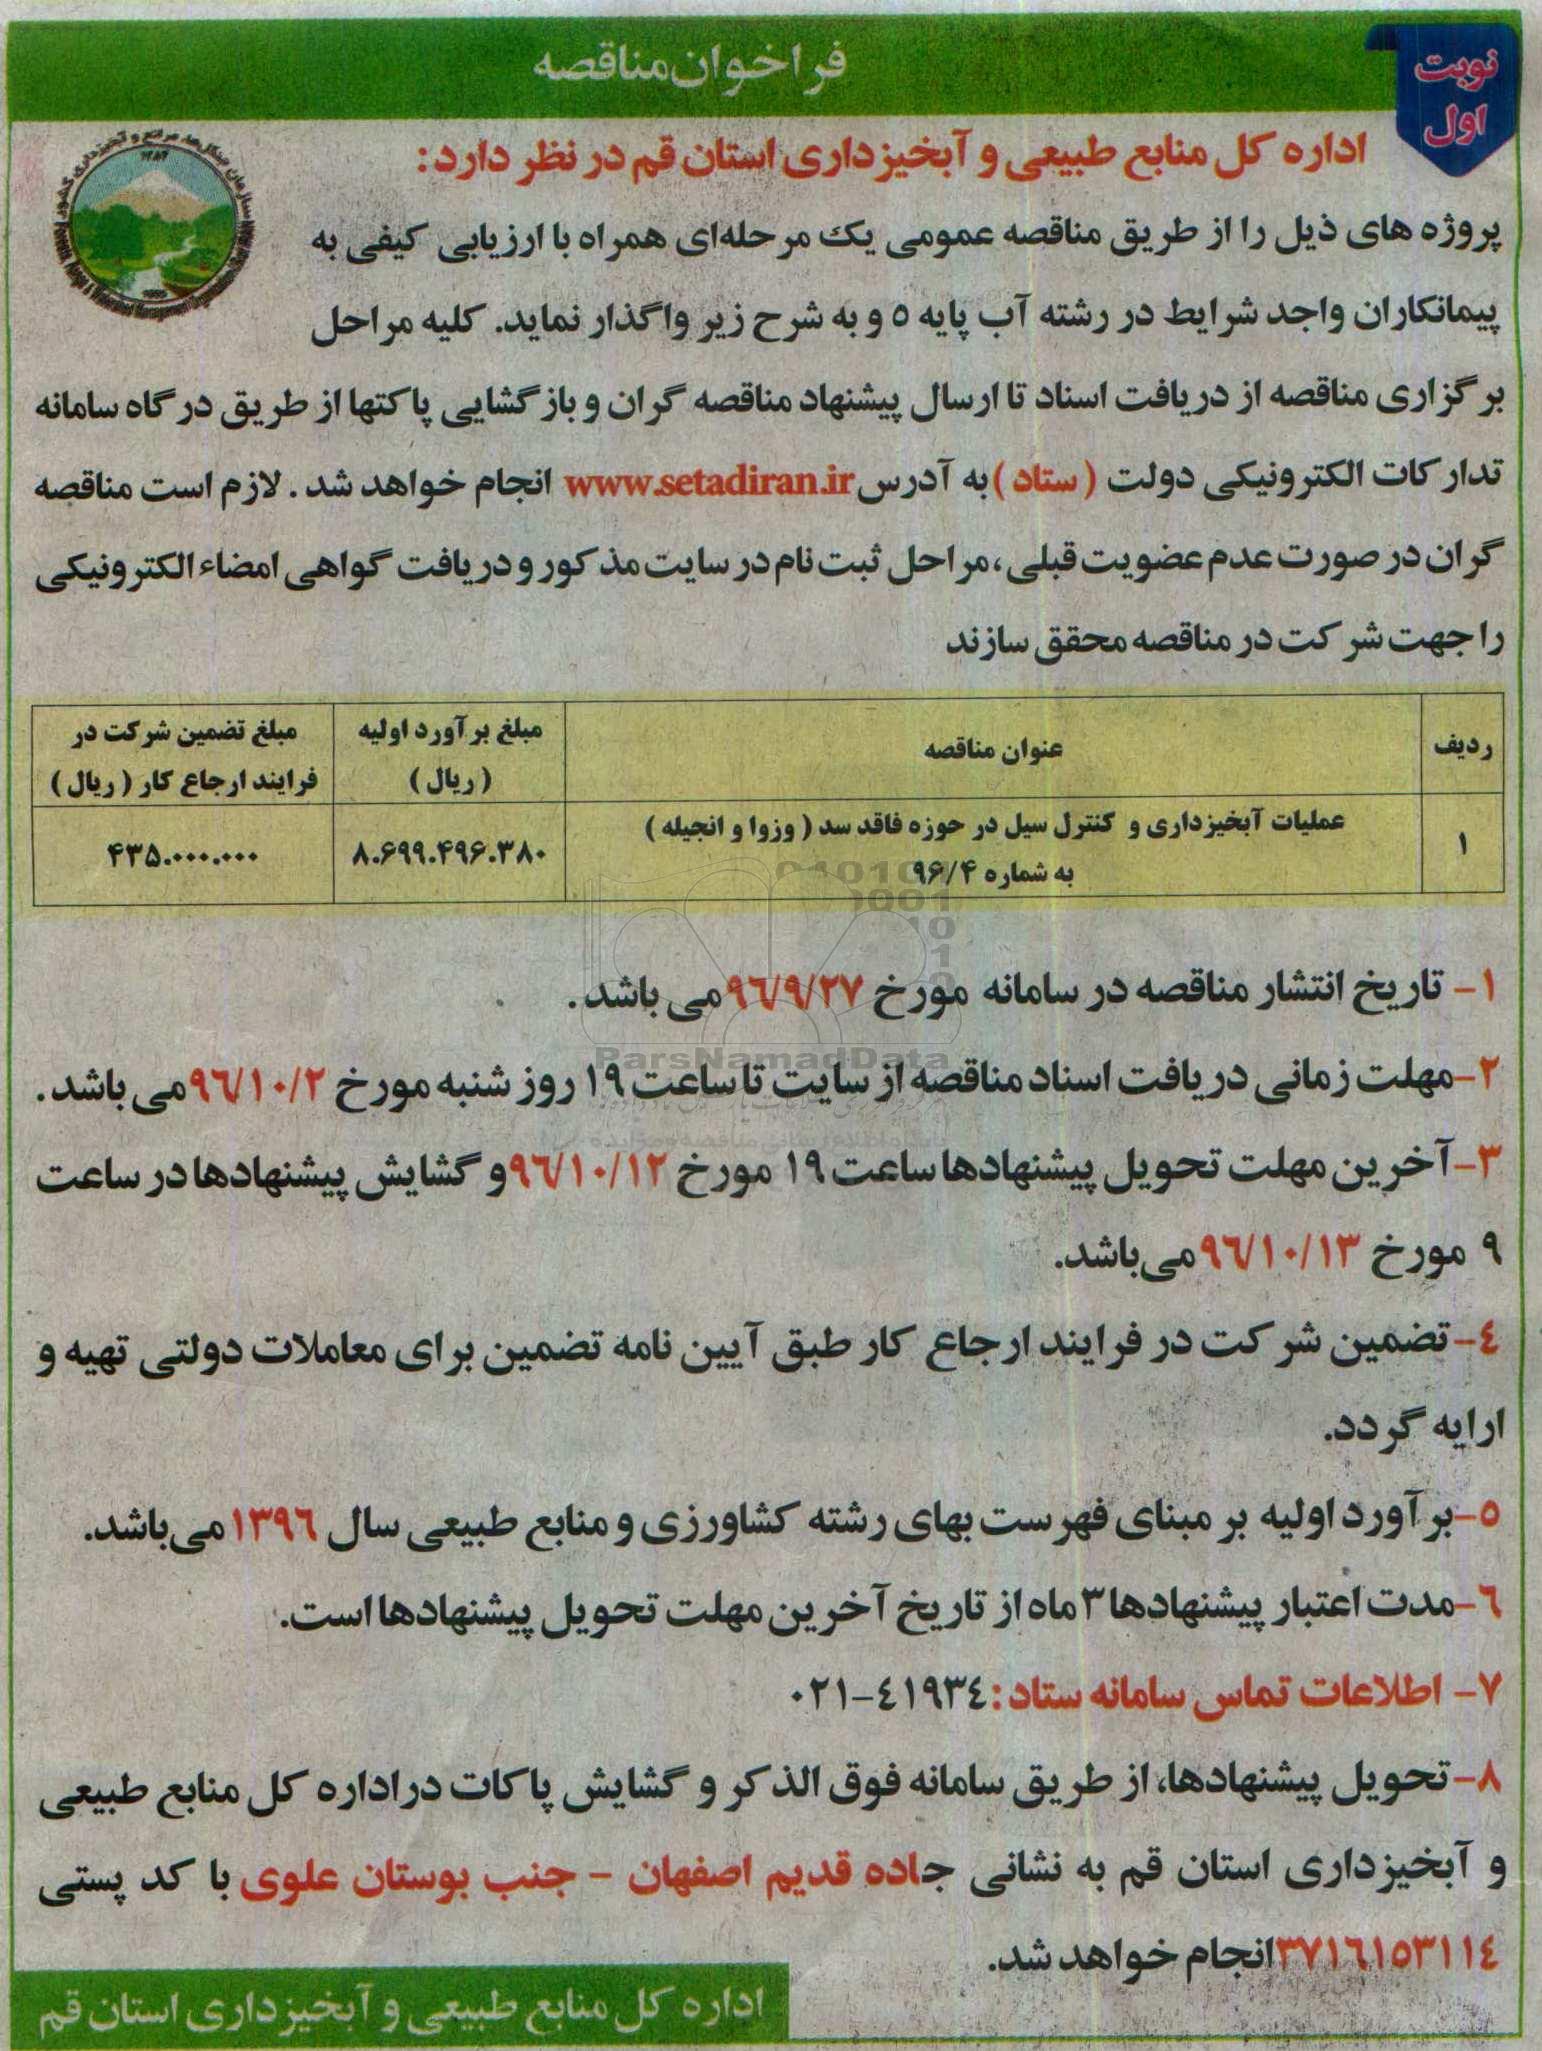 فراخوان مناقصه
نوبت
اول
اداره کل منابع طبیعی و آبخیزداری استان قم در نظر دارد:
پروژه های ذیل را از طریق مناقصه عمومی یک مرحله‌ای همراه با ارزیابی کیفی به
پیمانکاران واجد شرایط در رشته آب پایه ۵ و به شرح زیر واگذار نماید. کلیه مراحل
برگزاری مناقصه از دریافت اسناد تا ارسال پیشنهاد مناقصه گران و بازگشایی پاکتها از طریق درگاه سامانه
تدارکات الکترونیکی دولت (ستاد) به آدرس www.setadiran.ir انجام خواهد شد. لازم است مناقصه
گران در صورت عدم عضویت قبلی، مراحل ثبت نام در سایت مذکور و دریافت گواهی امضاء الکترونیکی
را جهت شرکت در مناقصه محقق سازند
ردیف	عنوان مناقصه	مبلغ برآورد اولیه (ریال)	مبلغ تضمین شرکت در فرایند ارجاع کار (ریال)
۱	عملیات آبخیزداری و کنترل سیل در حوزه فاقد سد (وزوا و انجیله) به شماره ۹۶/۴	۸.۶۹۹.۴۹۶.۳۸۰	۴۳۵.۰۰۰.۰۰۰
ParsNamadData
۱- تاریخ انتشار مناقصه در سامانه مورخ ۹۶/۹/۲۷ می باشد.
۲- مهلت زمانی دریافت اسناد مناقصه از سایت تا ساعت ۱۹ روز شنبه مورخ ۹۶/۱۰/۲ می باشد.
۳- آخرین مهلت تحویل پیشنهادها ساعت ۱۹ مورخ ۹۶/۱۰/۱۲ و گشایش پیشنهادها در ساعت
۹ مورخ ۹۶/۱۰/۱۳ می‌باشد.
۴- تضمین شرکت در فرایند ارجاع کار طبق آیین نامه تضمین برای معاملات دولتی تهیه و
ارایه گردد.
۵- برآورد اولیه بر مبنای فهرست بهای رشته کشاورزی و منابع طبیعی سال ۱۳۹۶ می‌باشد.
۶- مدت اعتبار پیشنهادها ۳ ماه از تاریخ آخرین مهلت تحویل پیشنهادها است.
۷- اطلاعات تماس سامانه ستاد: ۰۲۱-۴۱۹۳۴
۸- تحویل پیشنهادها، از طریق سامانه فوق الذکر و گشایش پاکات در اداره کل منابع طبیعی
و آبخیزداری استان قم به نشانی جاده قدیم اصفهان - جنب بوستان علوی با کد پستی
۳۷۱۶۱۵۳۱۱۴ انجام خواهد شد.
اداره کل منابع طبیعی و آبخیزداری استان قم